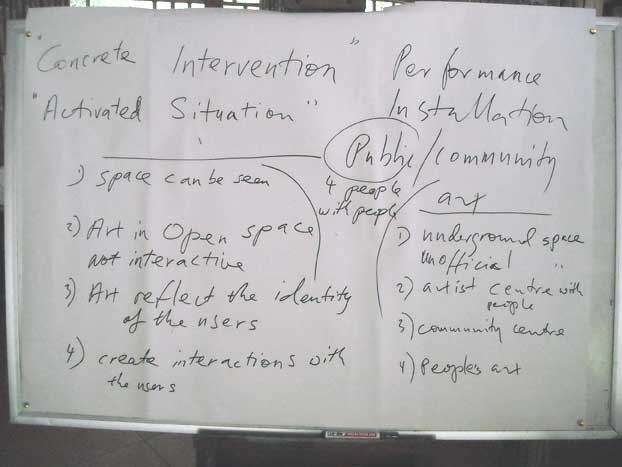 "Concrete Intervention"
"Activated Situation"
Performance
Installation
Public/community
art
4 people
with people
1) space can be seen
2) Art in Open space
not interactive
3) Art reflect the identity
of the users
4) create interactions with
the users
1) underground space
unofficial "
2) artist centre with
people
3) community centre
4) Peoples art